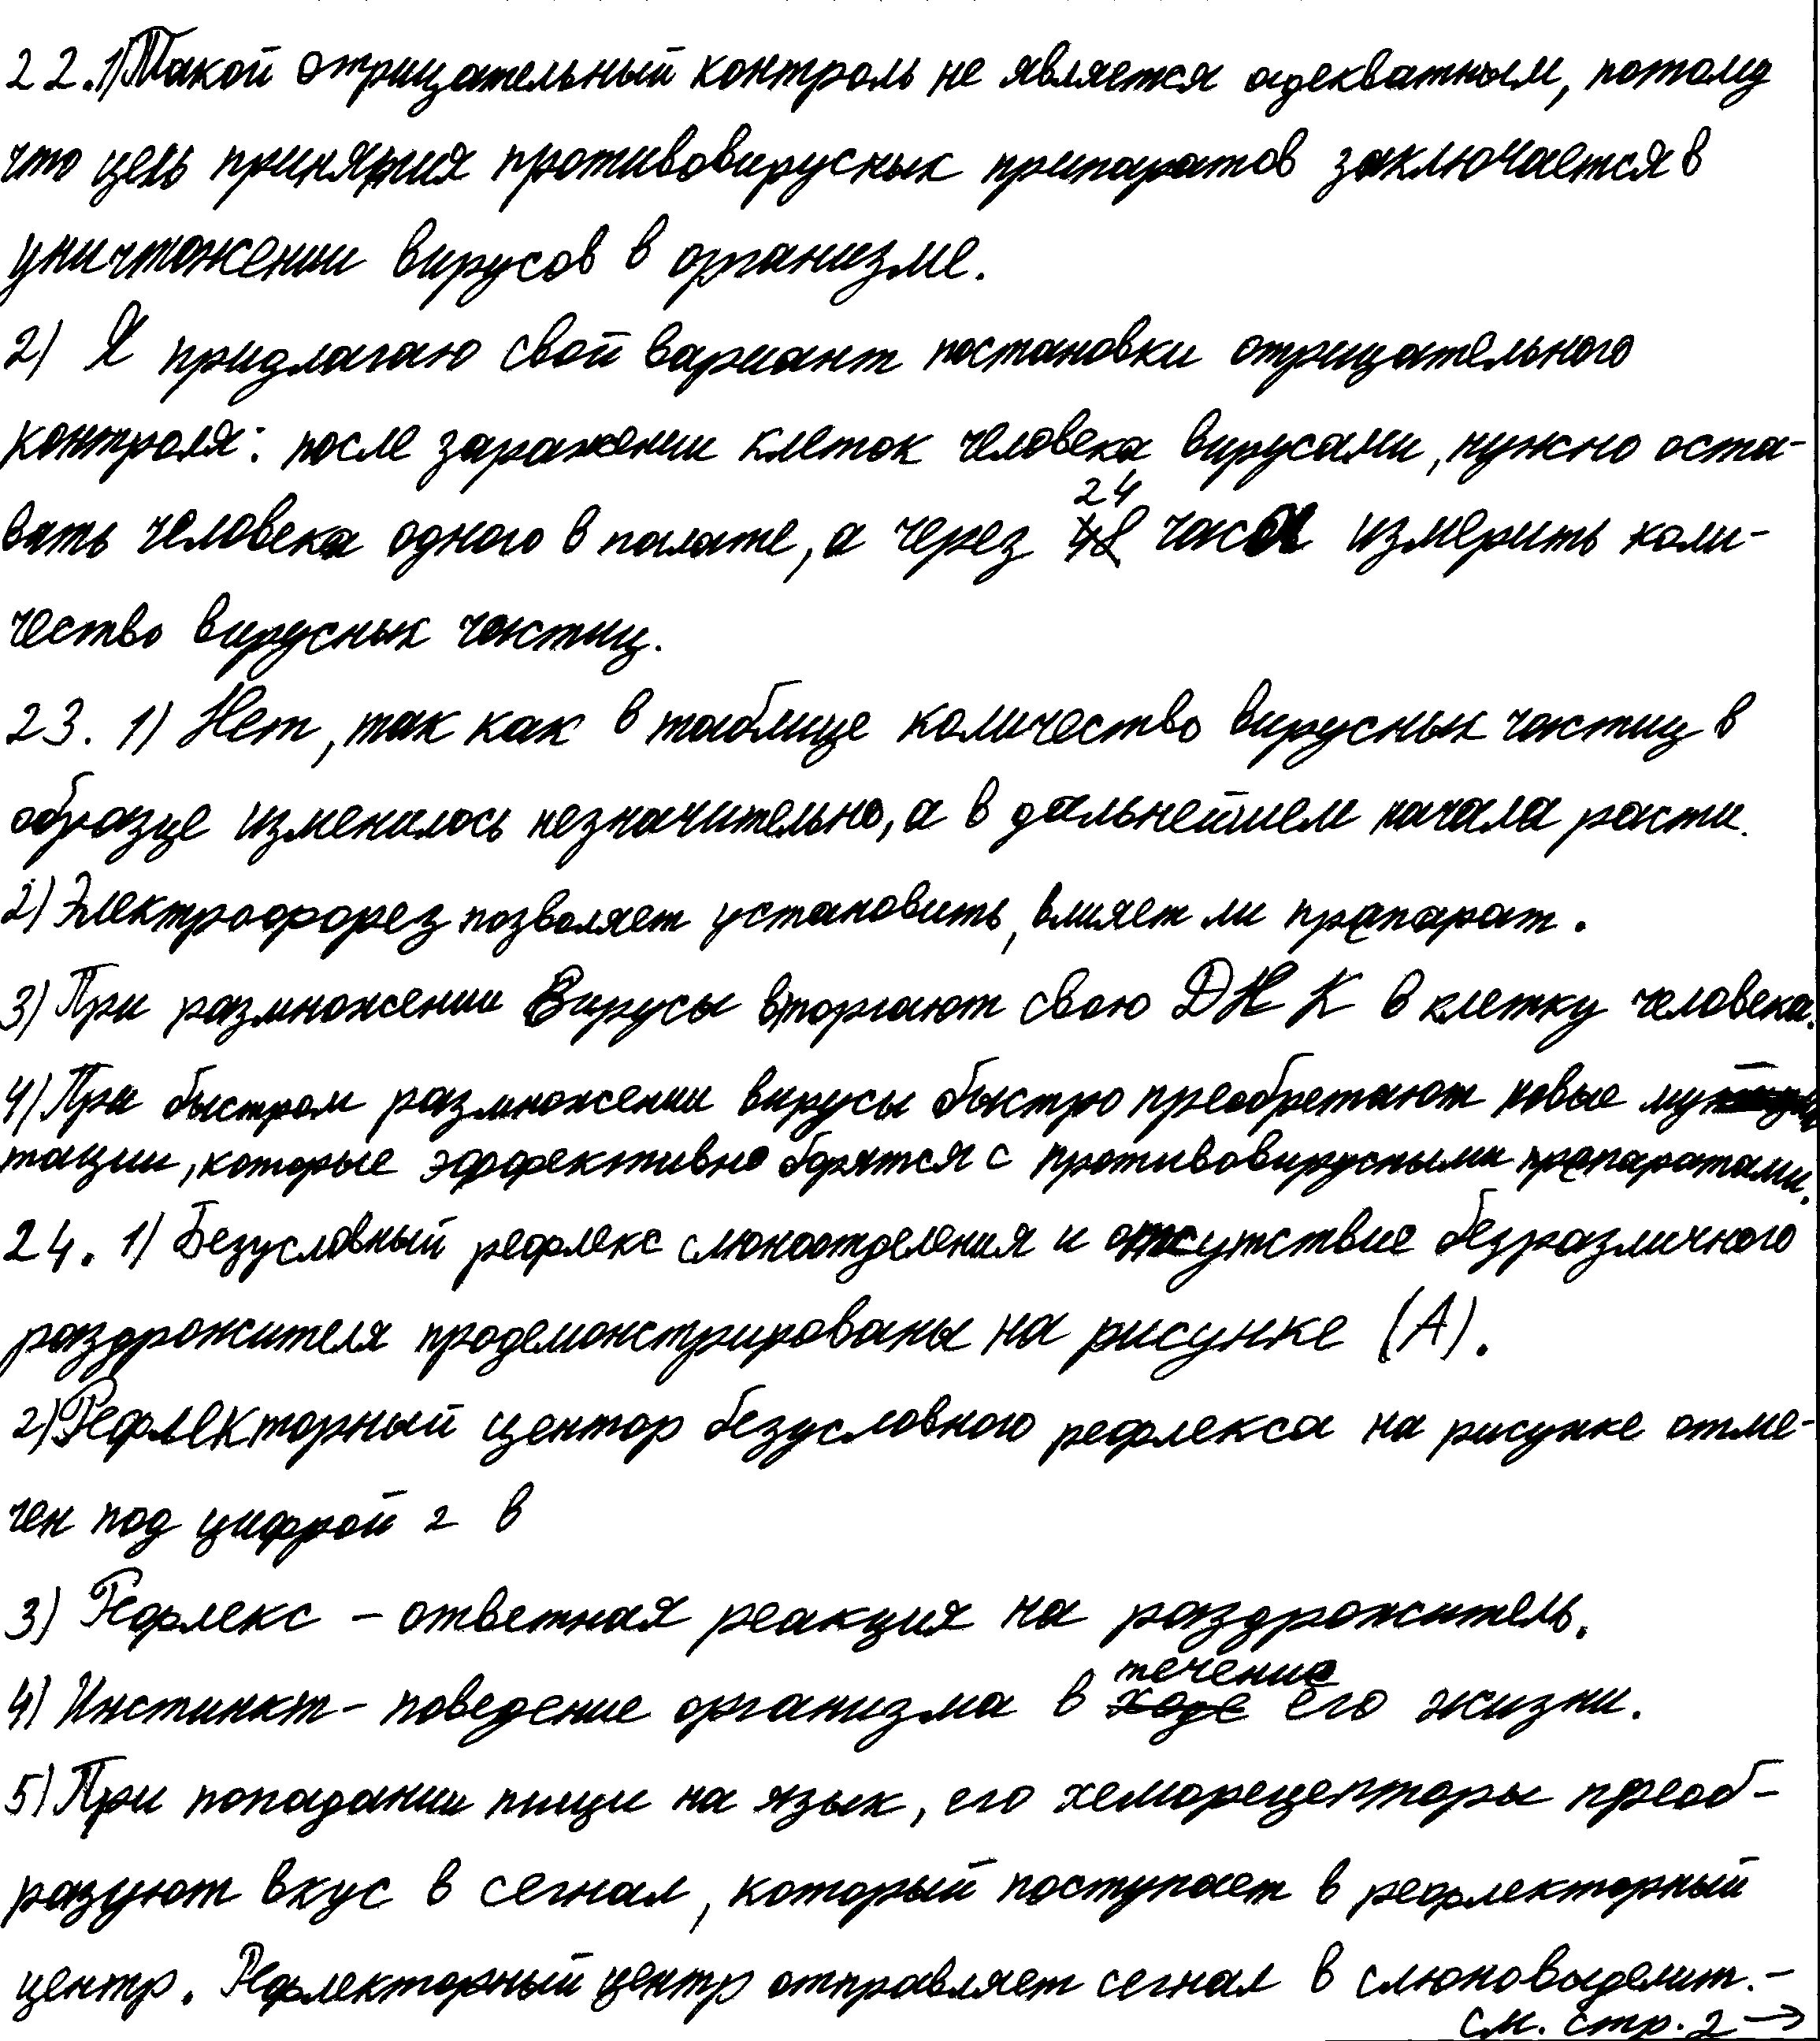 22.1) Такой отрицательный контроль не является адекватным, потому
что цель принятия противовирусных препаратов заключается в
уничтожении вирусов в организме.
2) Я придлагаю свой вариант постановки отрицательного
контроля: после заражении клеток человека вирусами, нужно оста-
вить человека одного в палате, а через 24 часа измерить коли-
чество вирусных частиц.
23. 1) Нет, так как в таблице количество вирусных частиц в
образце изменилось незначительно, а в дальнейшем начала расти.
2) Электрофорез позволяет установить, влияет ли препарат.
3) При размножении вирусы вторгают свою ДНК в клетку человека.
4) При быстром размножении вирусы быстро преобретают новые му
тации, которые эффективно борятся с противовирусными препаратами.
24. 1) Безусловный рефлекс слюноотделения и отсутствие безразличного
раздрожителя продемонстрированы на рисунке (А).
2) Рефлекторный центор безусловного рефлекса на рисунке отме-
чен под цифрой 2 в
3) Рефлекс – ответная реакция на раздрожитель.
4) Инстинкт – поведение организма в течение его жизни.
5) При попадании пищи на язык, его хеморецепторы преоб-
разуют вкус в сегнал, который поступает в рефлекторный
центр. Рефлекторный центр отправляет сегнал в слюновыделит.-
см. стр. 2 →